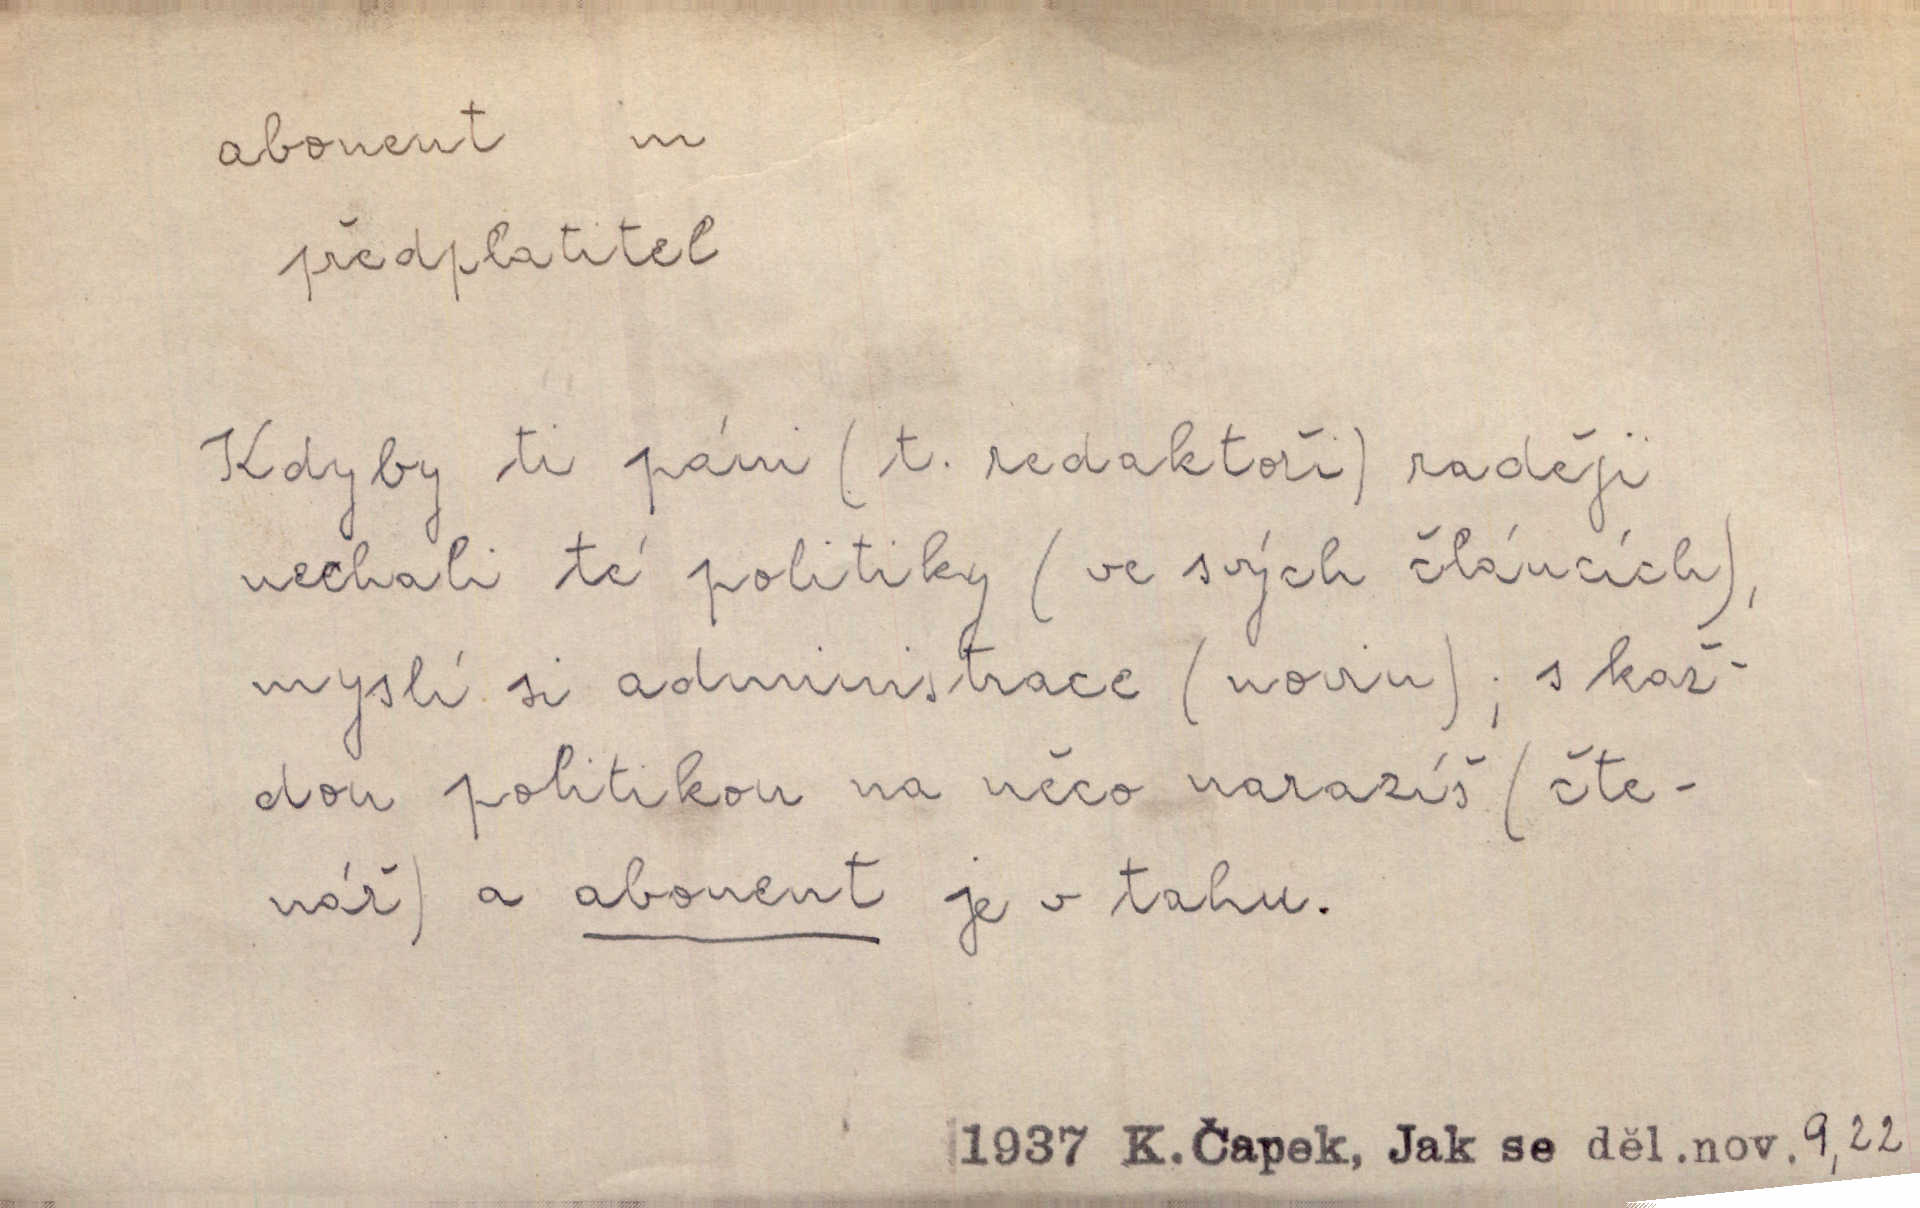 abonent m
předplatitel
Kdyby ti páni (t. redaktoři) raději
nechali té politiky (ve svých článcích),
myslí si administrace (novin); s kaž-
dou politikou na něco narazíš (čte-
nář) a abonent je v tahu.
1937 K. Čapek, Jak se děl.nov. 9,22